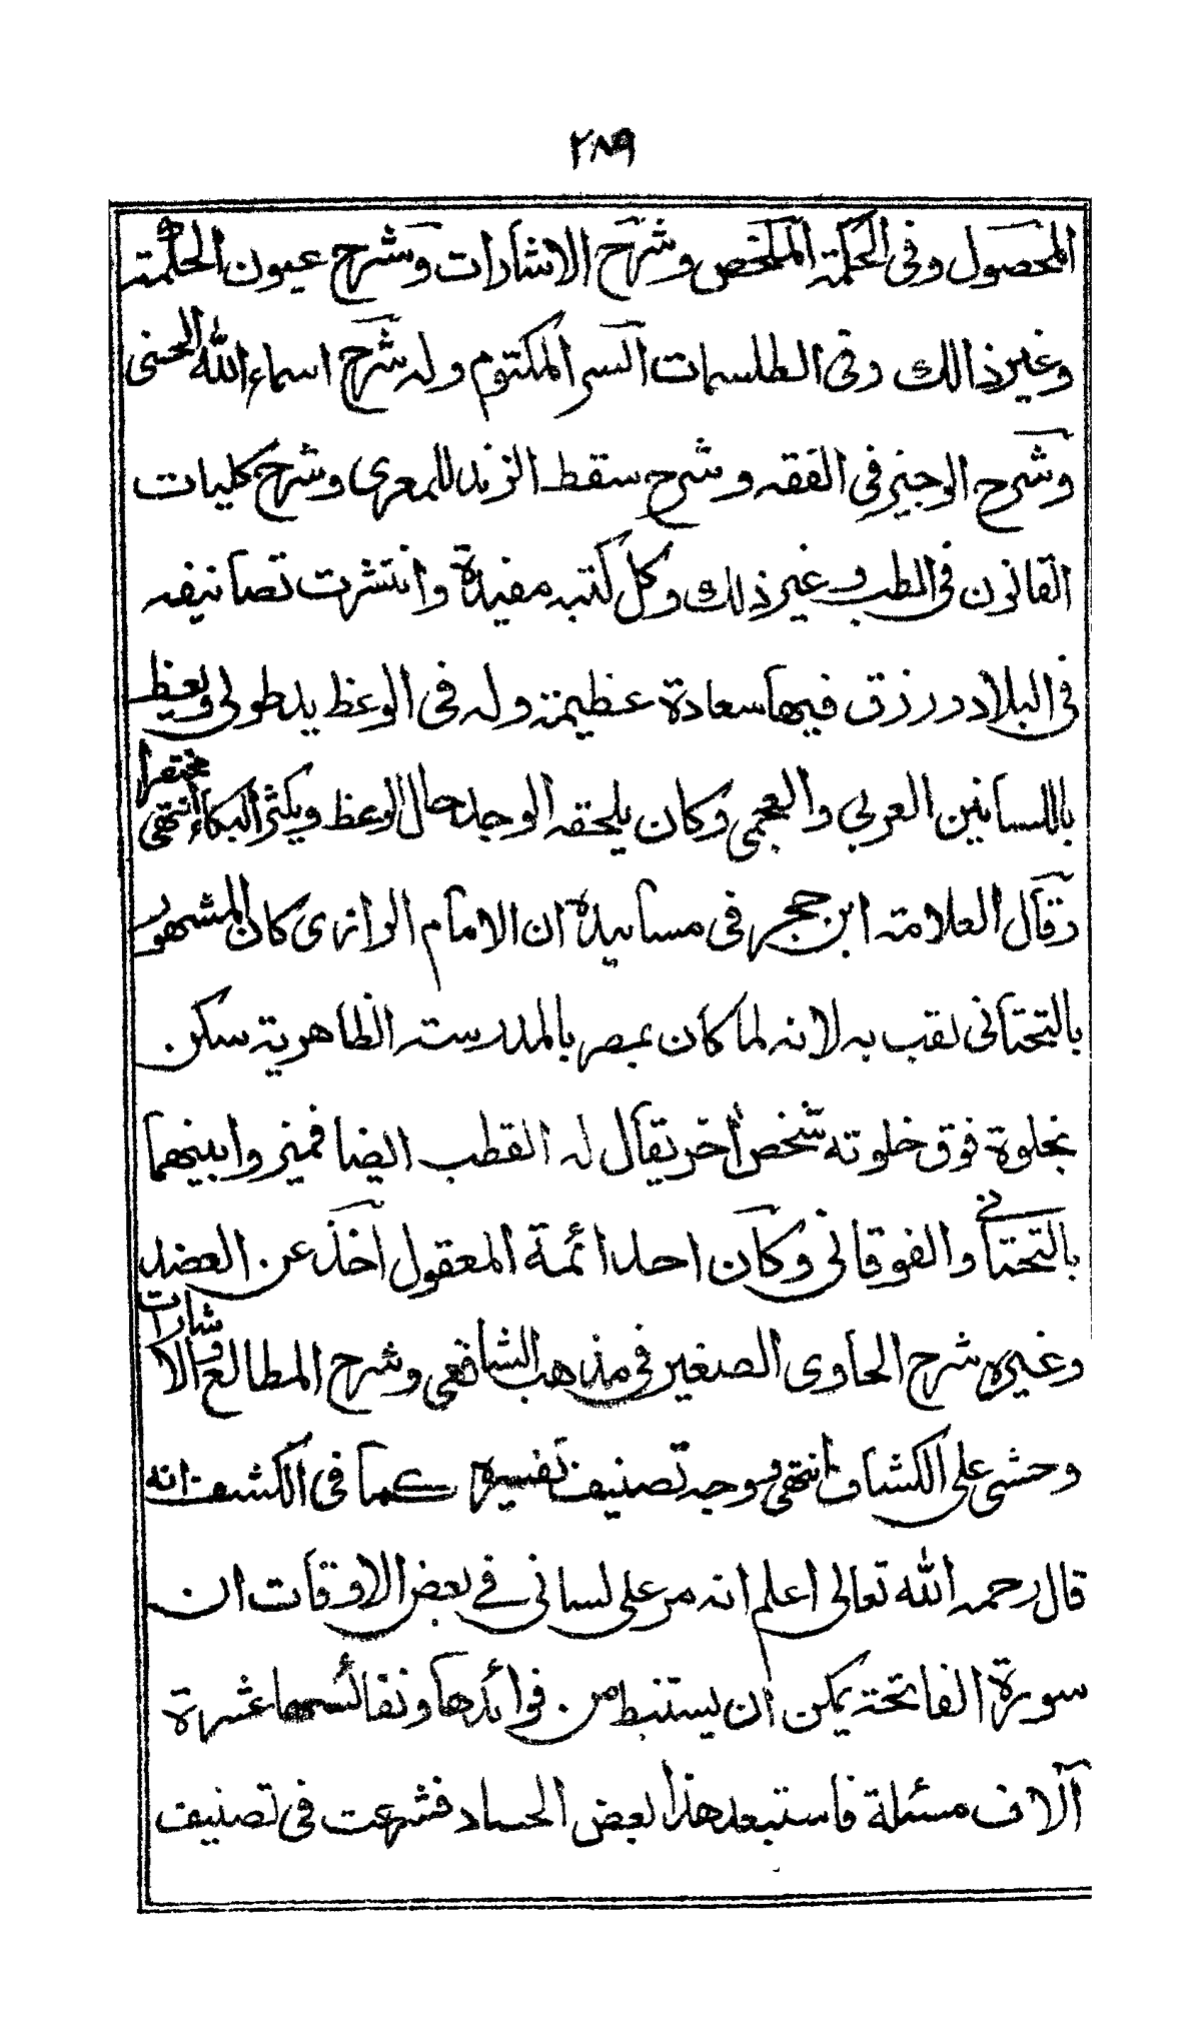 ٢٨٩
المحصول وفى الحكمة الملخص وشرح الاشارات وشرح عيون الحكمة
وغير ذالك وفى الطلسمات السر المكتوم وله شرح اسماء الله الحسنى
وشرح الوجيز فى الفقه وشرح سقط الزند للمعرى وشرح كليات
القانون فى الطب وغير ذلك وكل كتبه مفيدة وانتشرت تصانيفه
فى البلاد ورزق فيها سعادة عظيمة وله فى الوعظ يد طولى ويعظ
باللسانين العربي والعجمي وكان يلحقه الوجد حال الوعظ ويكثر البكاء انتهى مختصرا
وقال العلامة ابن حجر فى مسانيدة ان الامام الرازى كان المشهور
بالتحتانى لقب به لانه لما كان بمصر بالمدرسته الظاهرية سكن
بخلوة فوق خلوته شخص أخر يقال له القطب ايضا فميزوا بينهما
بالتحتانى والفوقانى وكان احد ائمة المعقول اخذ عن العضد
وغيره شرح الحاوى الصغير فى مذهب الشافعى وشرح المطالع والاشارات
وحشى على الكشاف انتهى ووجه تصنيف تفسيره كما فى الكشف انه
قال رحمه الله تعالى اعلم انه مر على لسانى في بعض الاوقات ان
سورة الفاتحة يمكن ان يستنبط من فوائدها ونفائسها عشرة
آلاف مسئلة فاستبعد هذا بعض الحساد فشرعت فى تصنيف